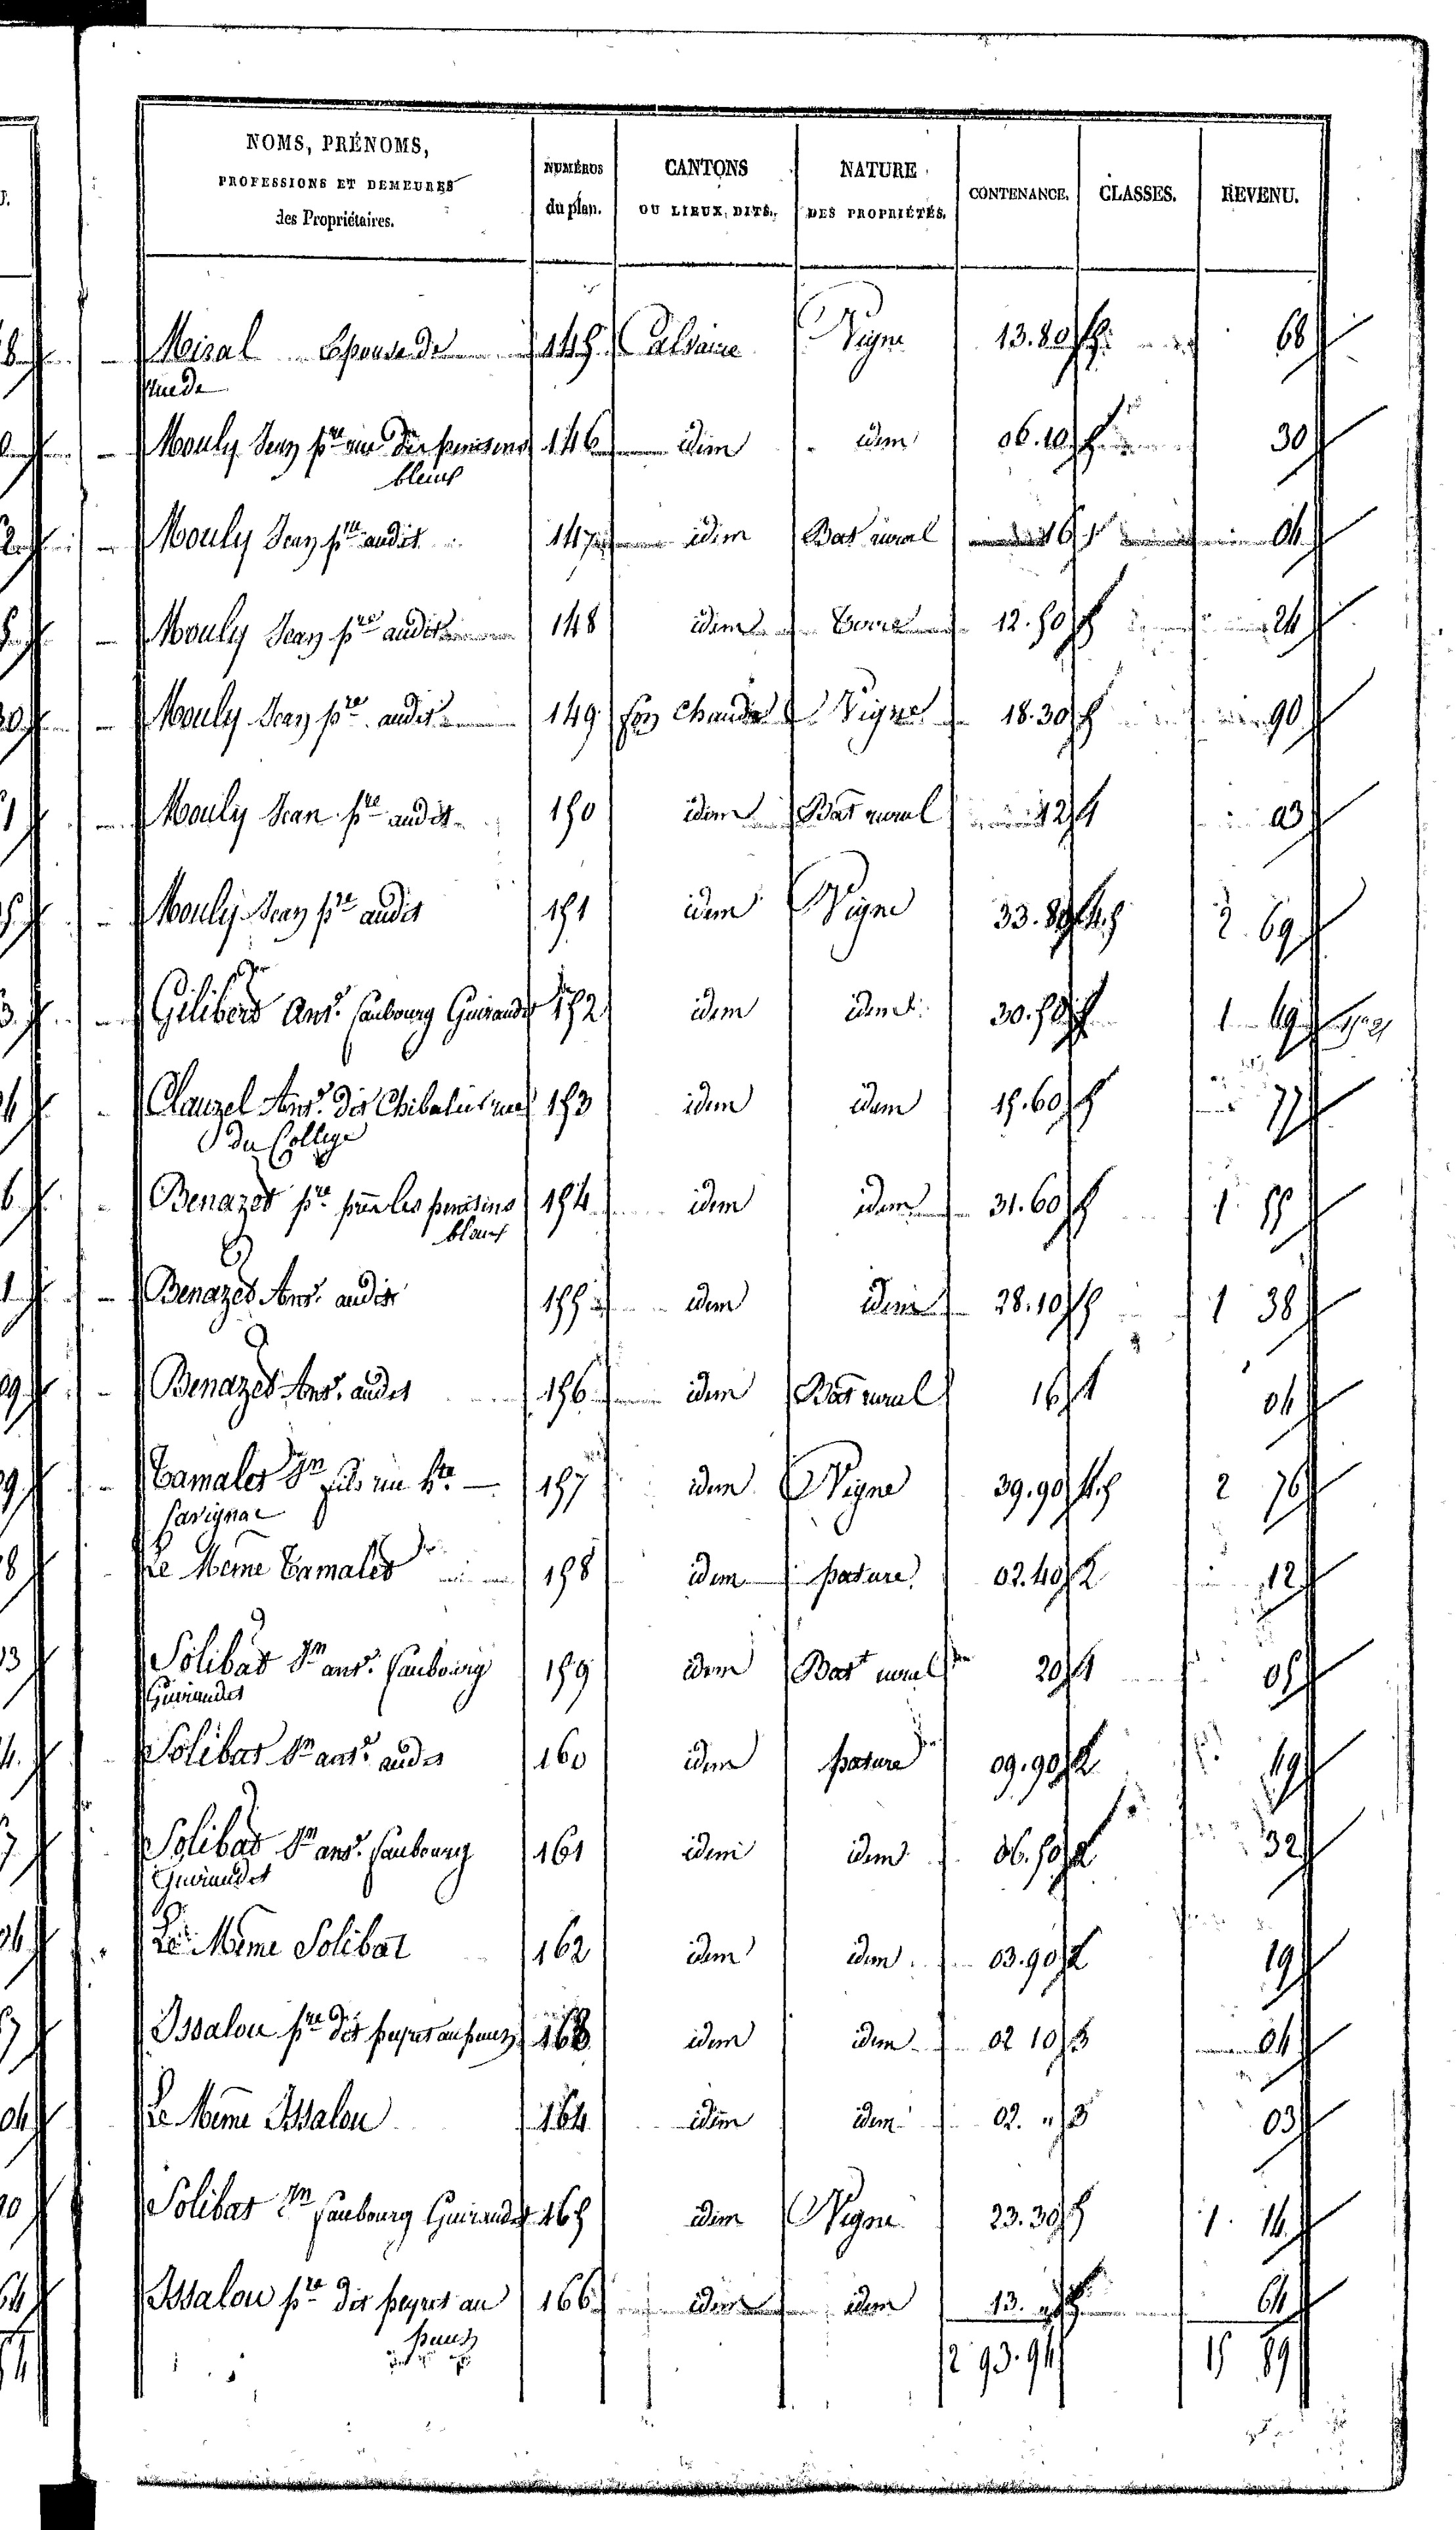 NOMS, PRÉNOMS,
PROFESSIONS ET DEMEURES
des Propriétaires.
NUMÉROS
du plan.
CANTONS
OU LIEUX, DITS.
NATURE
DES PROPRIÉTÉS.
CONTENANCE.
CLASSES.
REVENU.
Miral Epouse de 145 Calvaire Vigne 13.80 5 68
Mouly Jean pre rue des penitens 146 idem idem 06.10 5 30
bleus
Mouly Jean pre audit 147 idem Bat rural 16 1 04
Mouly Jean pre audit 148 idem Terre 12.50 5 24
Mouly Jean pre audit 149 fon Chaude Vigne 18.30 5 90
Mouly Jean pre audit 150 idem Bat rural 12 1 03
Mouly Jean pre audit 151 idem Vigne 33.80 4.5 2 69
Gilibert Ant. faubourg Guiraudet 152 idem idem 30.50 5 1 49
Clauzel Ant. dit Chibalié rue 153 idem idem 15.60 5 77
du College
Benazet pre les penitens 154 idem idem 31.60 5 1 55
bleus
Benazet Ant. audit 155 idem idem 28.10 5 1 38
Benazet Ant. audit 156 idem Bat rural 16 1 04
Tamalet Jn fils rue hte 157 idem Vigne 39.90 4.5 2 76
Savignac
Le Meme Tamalet 158 idem pature 02.40 2 12
Solibat Jn ant. faubourg 159 idem Bat rural 20 1 05
Guiraudet
Solibat Jn ant. audit 160 idem pature 09.90 2 49
Solibat Jn ant. faubourg 161 idem idem 06.50 2 32
Guiraudet
Le Meme Solibat 162 idem idem 03.90 2 19
Issalou pre dit peyret au puits 163 idem idem 02 10 3 04
Le Meme Issalou 164 idem idem 02. " 3 03
Solibat Jn faubourg Guiraudet 165 idem Vigne 23.30 5 1 14
Issalou pre dit peyret au 166 idem idem 13. " 5 64
puits
2 93.94 15 89